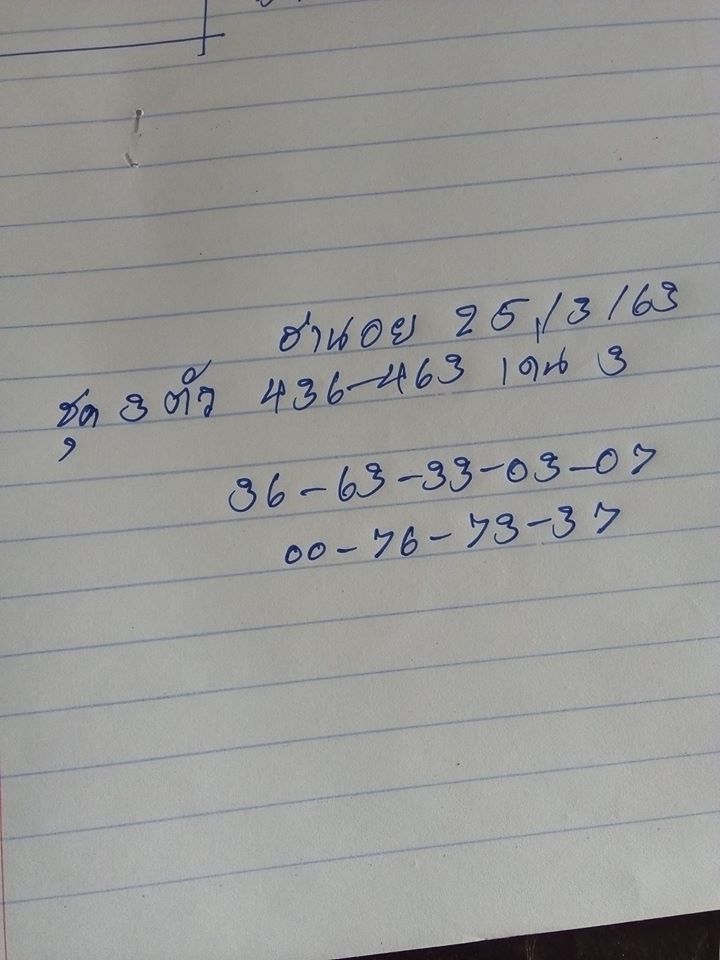 ฮานอย 25/3/63
ชุด 3 ตัว 436-463 เด่น 3
36-63-33-03-07
00-76-73-37